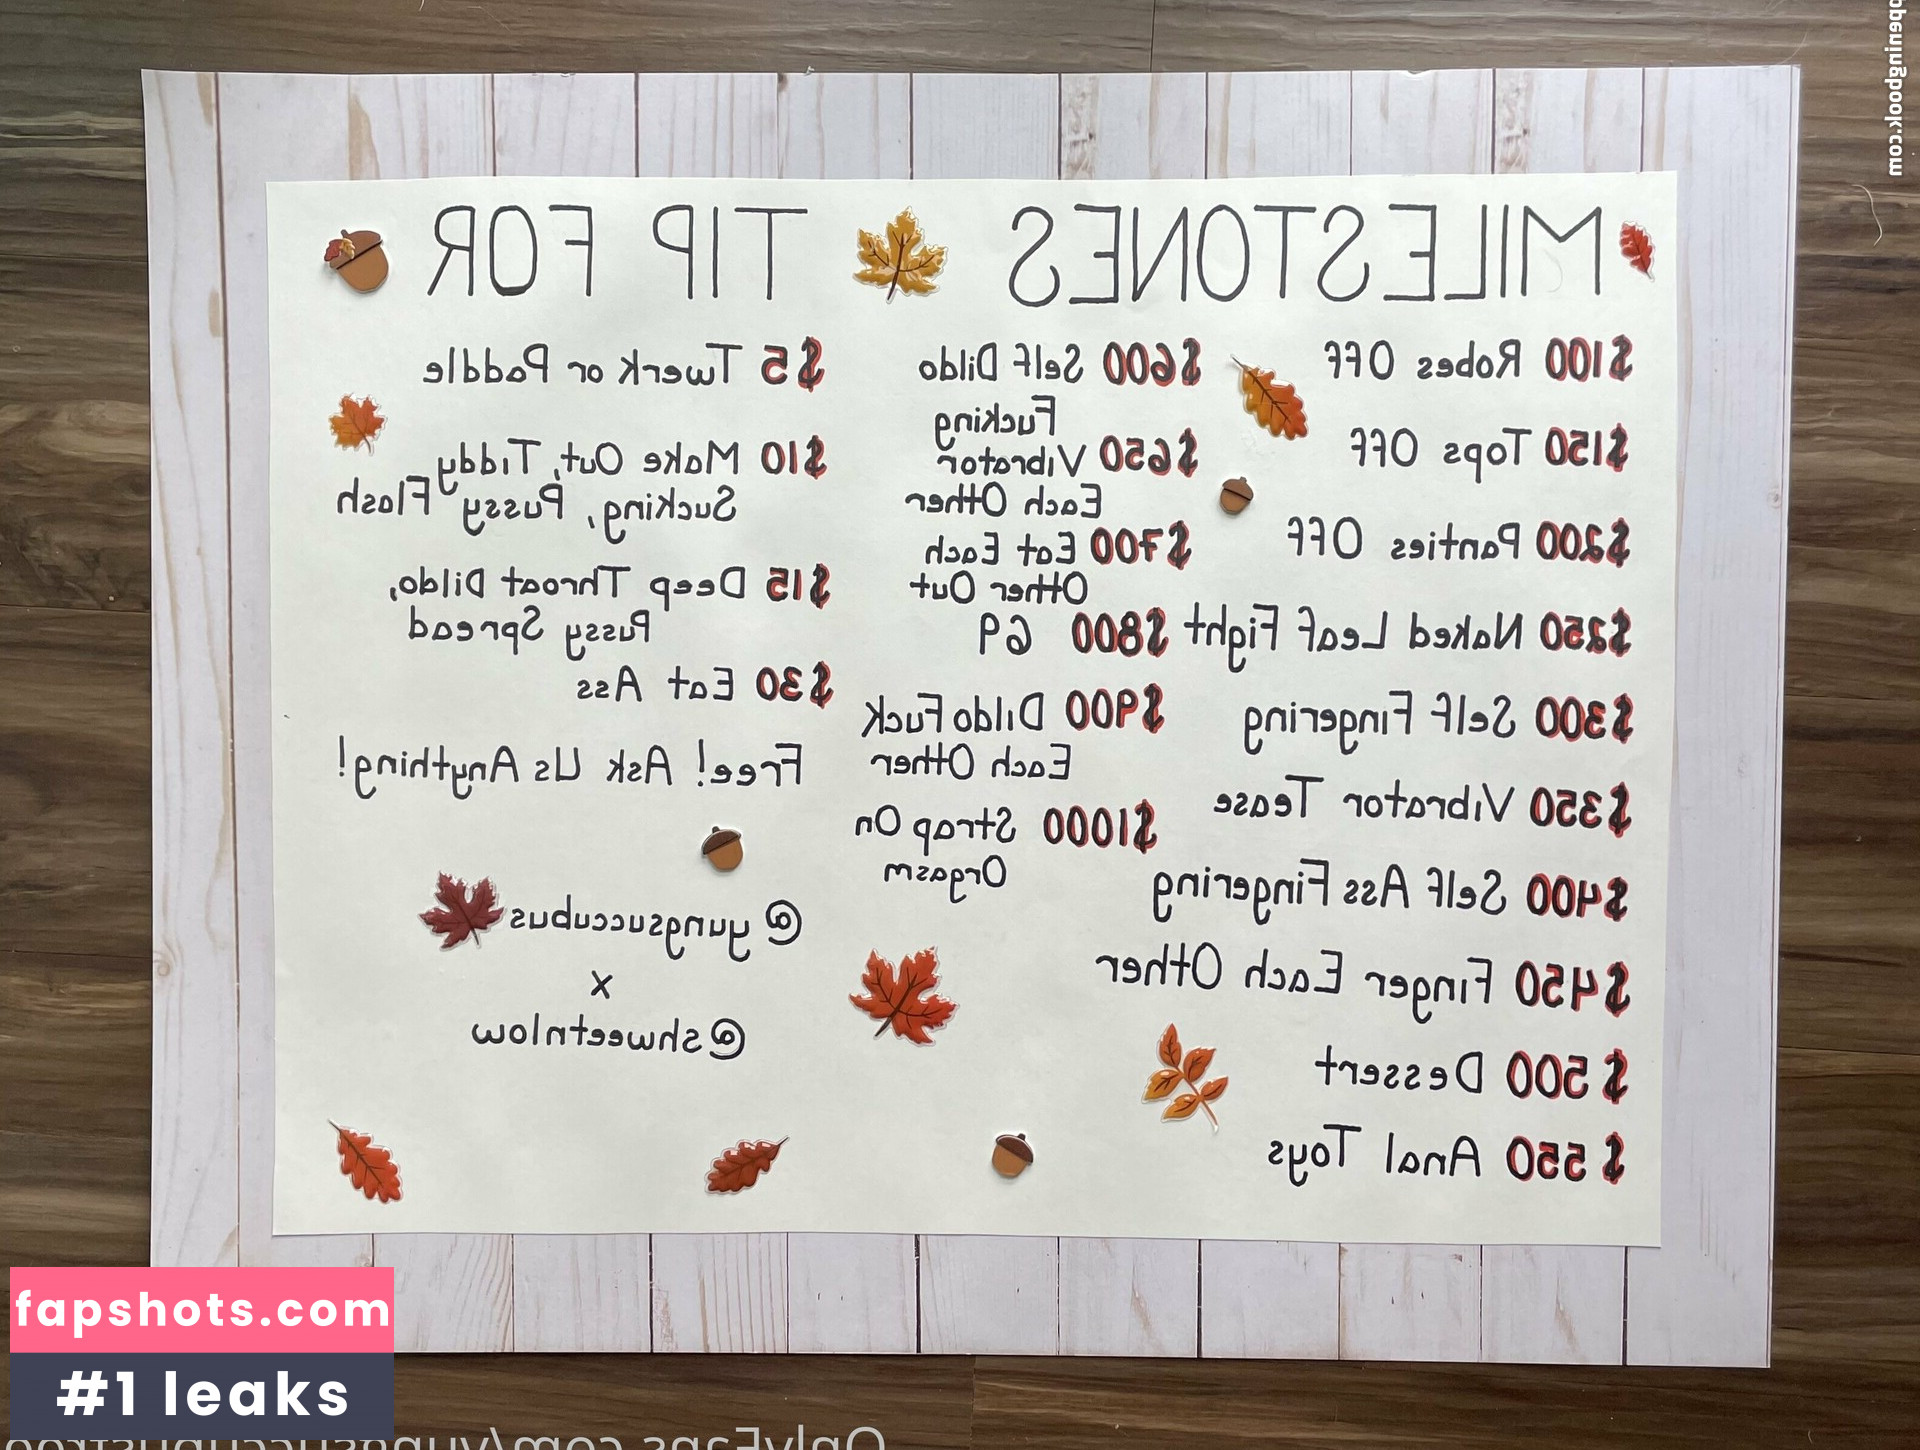 MILESTONES
$100 Robes Off
$150 Tops Off
$200 Panties Off
$250 Naked Leaf Fight
$300 Self Fingering
$350 Vibrator Tease
$400 Self Ass Fingering
$450 Finger Each Other
$500 Dessert
$550 Anal Toys
$600 Self Dildo
Fucking
$650 Vibrator
Each Other
$700 Eat Each
Other Out
$800 69
$900 Dildo Fuck
Each Other
$1000 Strap On
Orgasm
TIP FOR
$5 Twerk or Paddle
$10 Make Out, Tiddy
Sucking, Pussy Flash
$15 Deep Throat Dildo,
Pussy Spread
$30 Eat Ass
Free! Ask Us Anything!
@yungsuccubus
x
@shweetnlow
fapshots.com
#1 leaks